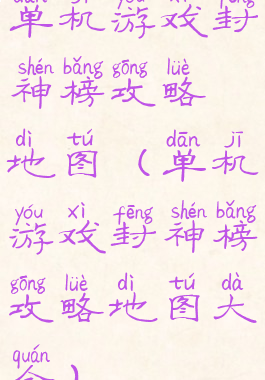 dān jī yóu xì fēng
单机游戏封
shén bǎng gōng lüè
神榜攻略
dì tú dān jī
地图（单机
yóu xì fēng shén bǎng
游戏封神榜
gōng lüè dì tú dà
攻略地图大
quán
全）